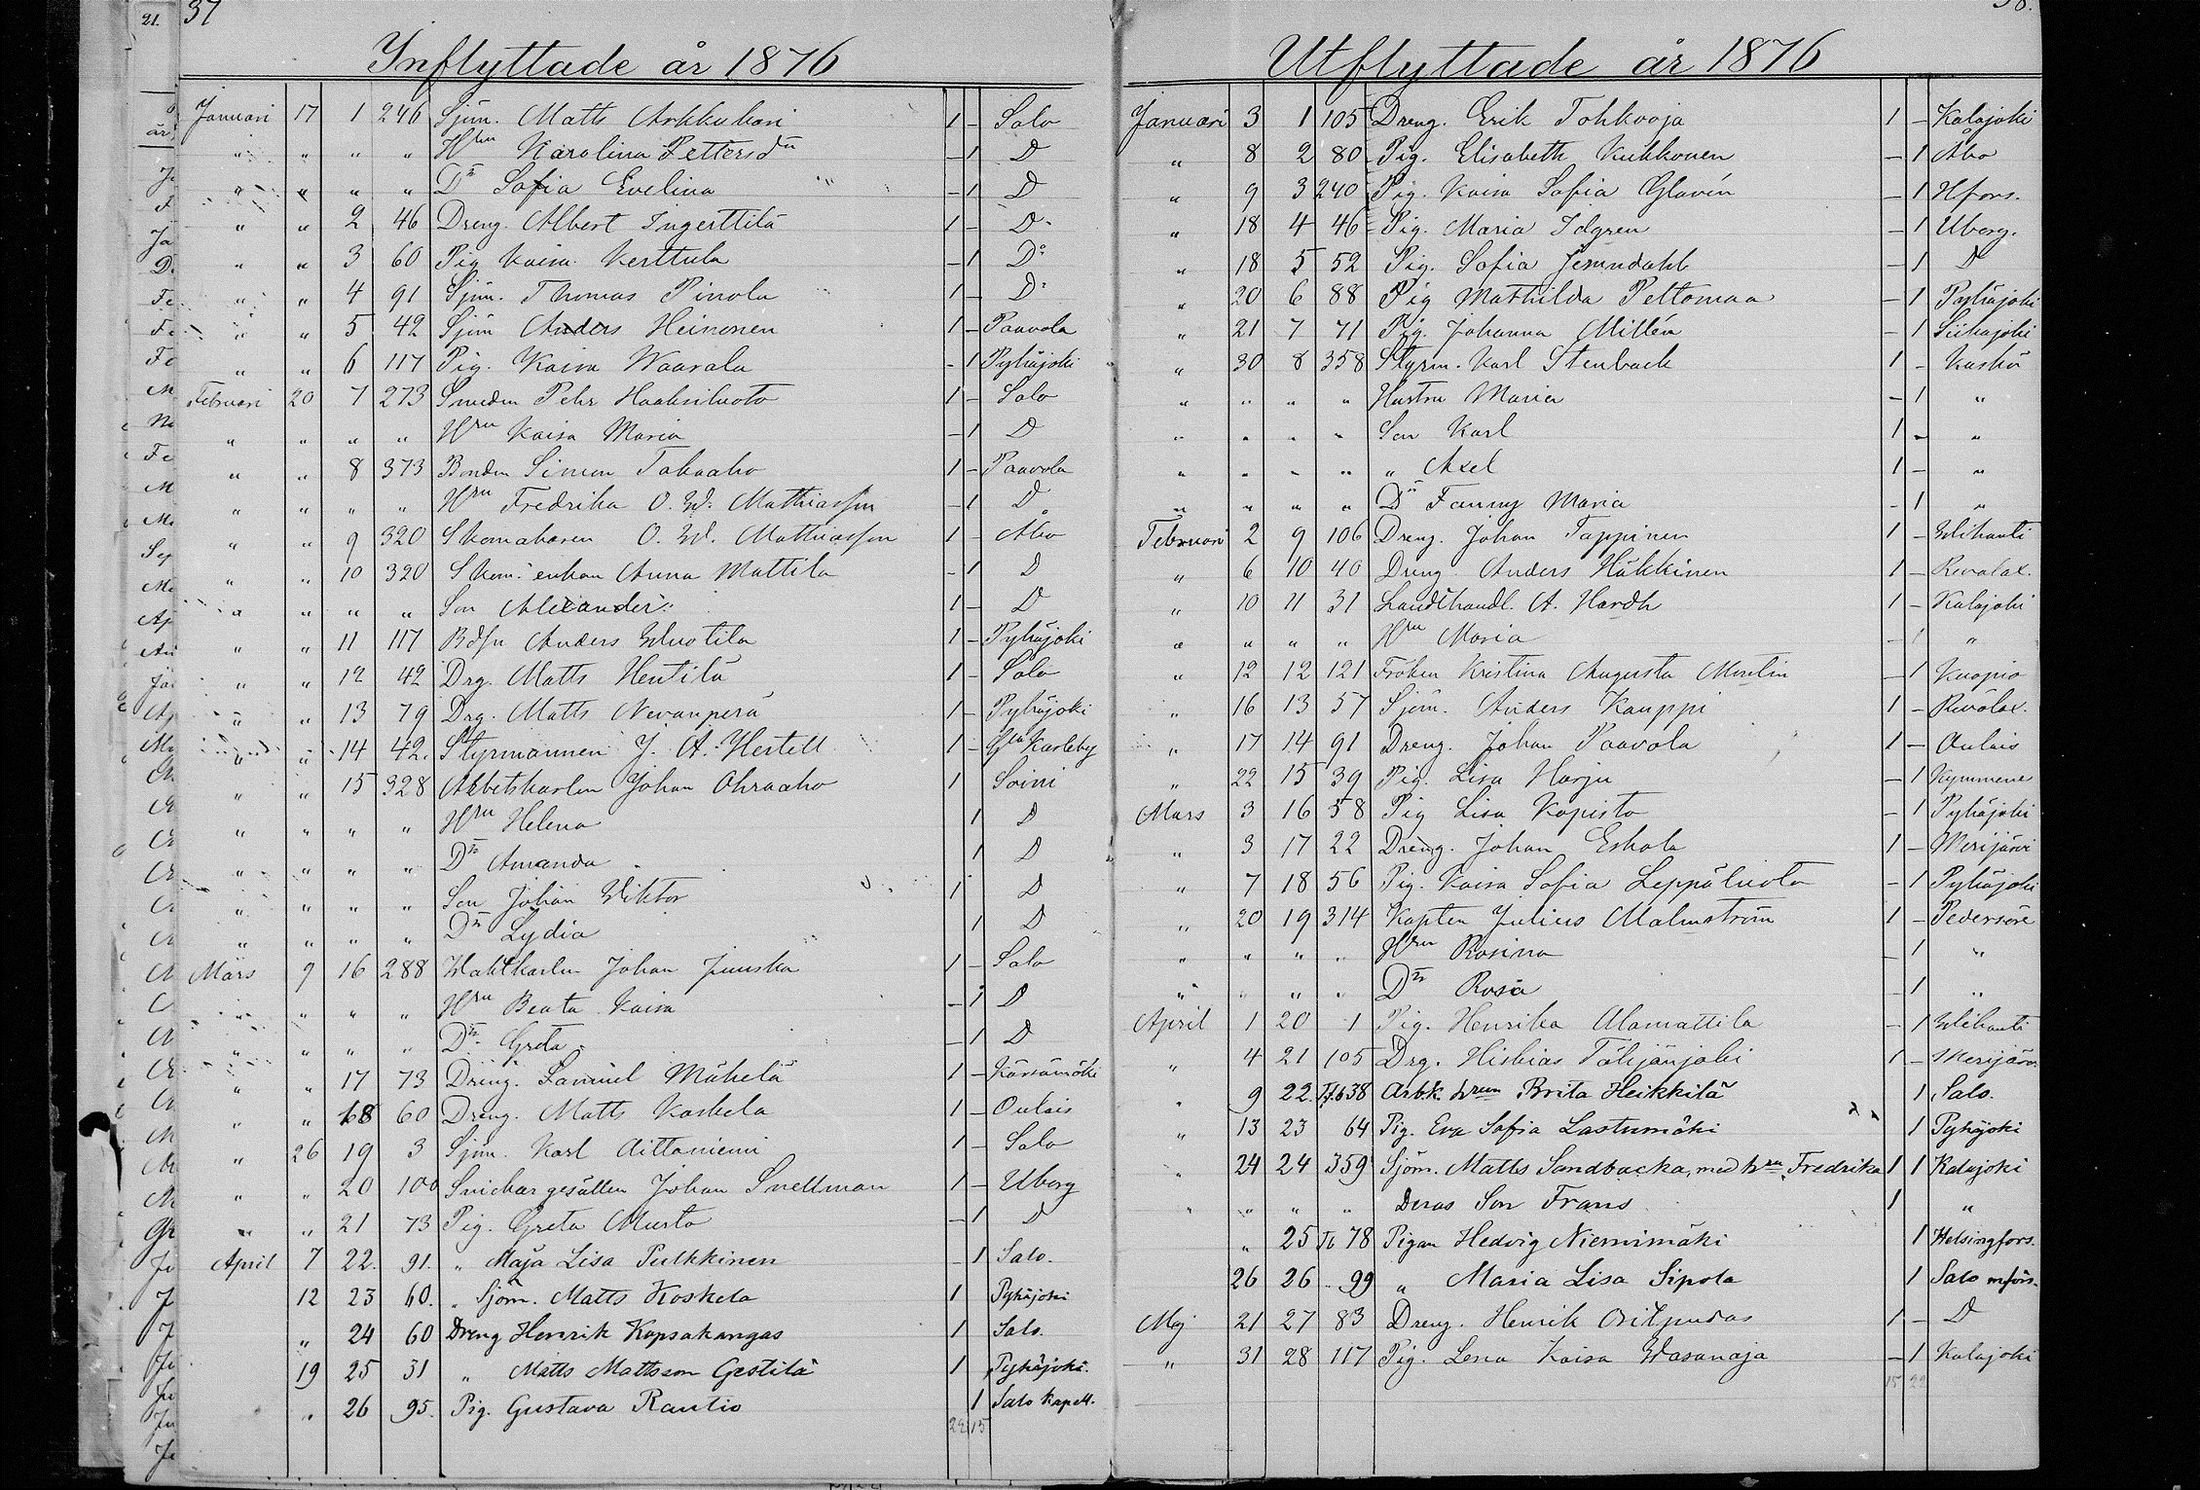 21.
37
Inflyttade år 1876
Januari 17 1 246 Sjöm. Matts Arkkukari 1 – Salo
" " " " Hru Karolina Pettersdr – 1 D
" " " " Dr Sofia Evelina – 1 D
" " 2 46 Dreng. Albert Ingerttilä 1 – D
" " 3 60 Pig Kaisa Kerttula – 1 D
" " 4 91 Sjöm. Thomas Pinola 1 – D
" " 5 42 Sjöm Anders Heinonen 1 – Paavola
" " 6 117 Pig. Kaisa Waarala – 1 Pyhäjoki
Februari 20 7 273 Smeden Pehr Haaksiluoto 1 – Salo
" " " " Hru Kaisa Maria – 1 D
" " 8 373 Bonden Simon Takaaho 1 – Paavola
" " " " Hru Fredrika O. W. Mathiasson – 1 D
" " 9 320 Skomakaren O. W. Mathiasson 1 – Åbo
" " 10 320 Skom. enkan Anna Mattila – 1 D
" " " " Son Alexander 1 – D
" " 11 117 Bdsn Anders Wuotila 1 – Pyhäjoki
" " 12 42 Drg. Matts Hentilä 1 – Salo
" " 13 79 Drg. Matts Nevanperä 1 – Pyhäjoki
" " 14 42. Styrmannen J. A. Hertell 1 – Gla Karleby
" " 15 328 Arbetskarlen Johan Ohraaho 1 Soini
" " " " Hru Helena 1 D
" " " " Dr Amanda 1 D
" " " " Son Johan Wiktor 1 D
" " " " Dr Lydia 1 D
Mars 9 16 288 Waktkarlen Johan Junska 1 – Salo
" " " " Hru Beata Kaisa – 1 D
" " " " Dr Greta – 1 D
" " 17 73 Dreng. Samuel Mäkelä 1 – Kärsämäki
" " 18 60 Dreng. Matts Koskela 1 – Oulais
" 26 19 3 Sjöm. Karl Aittoniemi 1 – Salo
" " 20 100 Snickargesällen Johan Snellman 1 – Uborg
" " 21 73 Pig. Greta Musto – 1 D
April 7 22. 91. " Maja Lisa Pulkkinen – 1 Salo.
12 23 60. " Sjöm. Matts Koskela 1 Pyhäjoki
" 24 60 Dreng Henrik Kopsakangas 1 Salo.
19 25 31 " Matts Mattsson Gestilä 1 Pyhäjoki.
" 26 95. Pig. Gustava Rautio 1 Salo Kapell.
22 15
38.
Utflyttade år 1876
Januari 3 1 105 Dreng. Erik Tohkooja 1 – Kalajoki
" 8 2 80 Pig. Elisabeth Kukkonen – 1 Åbo
" 9 3 240 Pig. Kaisa Sofia Glavin – 1 Hfors.
" 18 4 46 Pig. Maria Idgren – 1 Uborg.
" 18 5 52 Pig. Sofia – 1 D
" 20 6 88 Pig Mathilda Peltomaa – 1 Pyhäjoki
" 21 7 71 Pig. Johanna Millén – 1 Siikajoki
" 30 8 358 Styrm. Karl Stenback 1 – Kaskö
" " " " Hustru Maria – 1 "
" " " " Son Karl 1 – "
" " " " " Axel 1 – "
" " " " Dr Fanny Maria – 1 "
Februari 2 9 106 Dreng. Johan Tappinen 1 – Wihanti
" 6 10 40 Dreng Anders Häkkinen 1 – Revolax.
" 10 11 31 Landthandl. A. Hardh 1 – Kalajoki
" " " " Hru Maria – 1 "
" 12 12 121 Fröken Kristina Augusta Montin – 1 Kuopio
" 16 13 57 Sjöm. Anders Kauppi 1 – Revolax.
" 17 14 91 Dreng. Johan Paavola 1 – Oulais
" 22 15 39 Pig. Lisa Harju – 1 Kymmene
Mars 3 16 58 Pig Lisa Kopisto – 1 Pyhäjoki
" 3 17 22 Dreng. Johan Eskola 1 – Merijärvi
" 7 18 56 Pig. Kaisa Sofia Leppäluoto – 1 Pyhäjoki
" 20 19 314 Kapten Julius Malmström 1 – Pedersöre
" " " " Hru Rosina – 1 "
" " " " Dr Rosa – 1 "
April 1 20 1 Pig. Henrika Alamattila – 1 Wihanti
" 4 21 105 Drg. Hiskias Tähjänjoki 1 – Merijärvi
" 9 22. 638 Arbk. hrun Brita Heikkilä 1 Salo.
" 13 23 64 Pig. Eva Sofia Lastumäki 1 Pyhäjoki
" 24 24 359 Sjöm. Matts Sandbacka, med hru Fredrika 1 1 Kalajoki
" " " " Deras Son Frans 1 "
" 25 78 Pigan Hedvig Niemimäki 1 Helsingfors.
26 26 " 99 " Maria Lisa Sipola 1 Salo mförs.
Maj 21 27 83 Dreng. Henrik 1 – D
" 31 28 117 Pig. Lena Kaisa Wasanoja – 1 Kalajoki
15 22